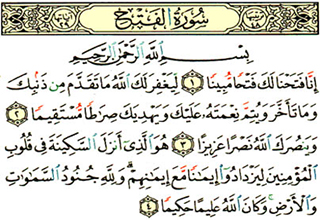 سُورَةُ الفَتْحِ
بِسْمِ اللَّهِ الرَّحْمَٰنِ الرَّحِيمِ
إِنَّا فَتَحْنَا لَكَ فَتْحًا مُّبِينًا ١ لِّيَغْفِرَ لَكَ اللَّهُ مَا تَقَدَّمَ مِن ذَنۢبِكَ
وَمَا تَأَخَّرَ وَيُتِمَّ نِعْمَتَهُۥ عَلَيْكَ وَيَهْدِيَكَ صِرَٰطًا مُّسْتَقِيمًا ٢
وَيَنصُرَكَ اللَّهُ نَصْرًا عَزِيزًا ٣ هُوَ الَّذِىٓ أَنزَلَ السَّكِينَةَ فِى قُلُوبِ
الْمُؤْمِنِينَ لِيَزْدَادُوٓا۟ إِيمَٰنًا مَّعَ إِيمَٰنِهِمْ ۗ وَلِلَّهِ جُنُودُ السَّمَٰوَٰتِ
وَالْأَرْضِ ۚ وَكَانَ اللَّهُ عَلِيمًا حَكِيمًا ٤